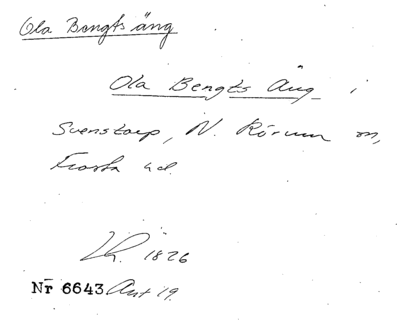 Ola Bengts äng
Ola Bengts Äng i
Svenstorp, N. Rörum sn,
Frosta hd.
1826
Nr 6643 Avt 19.